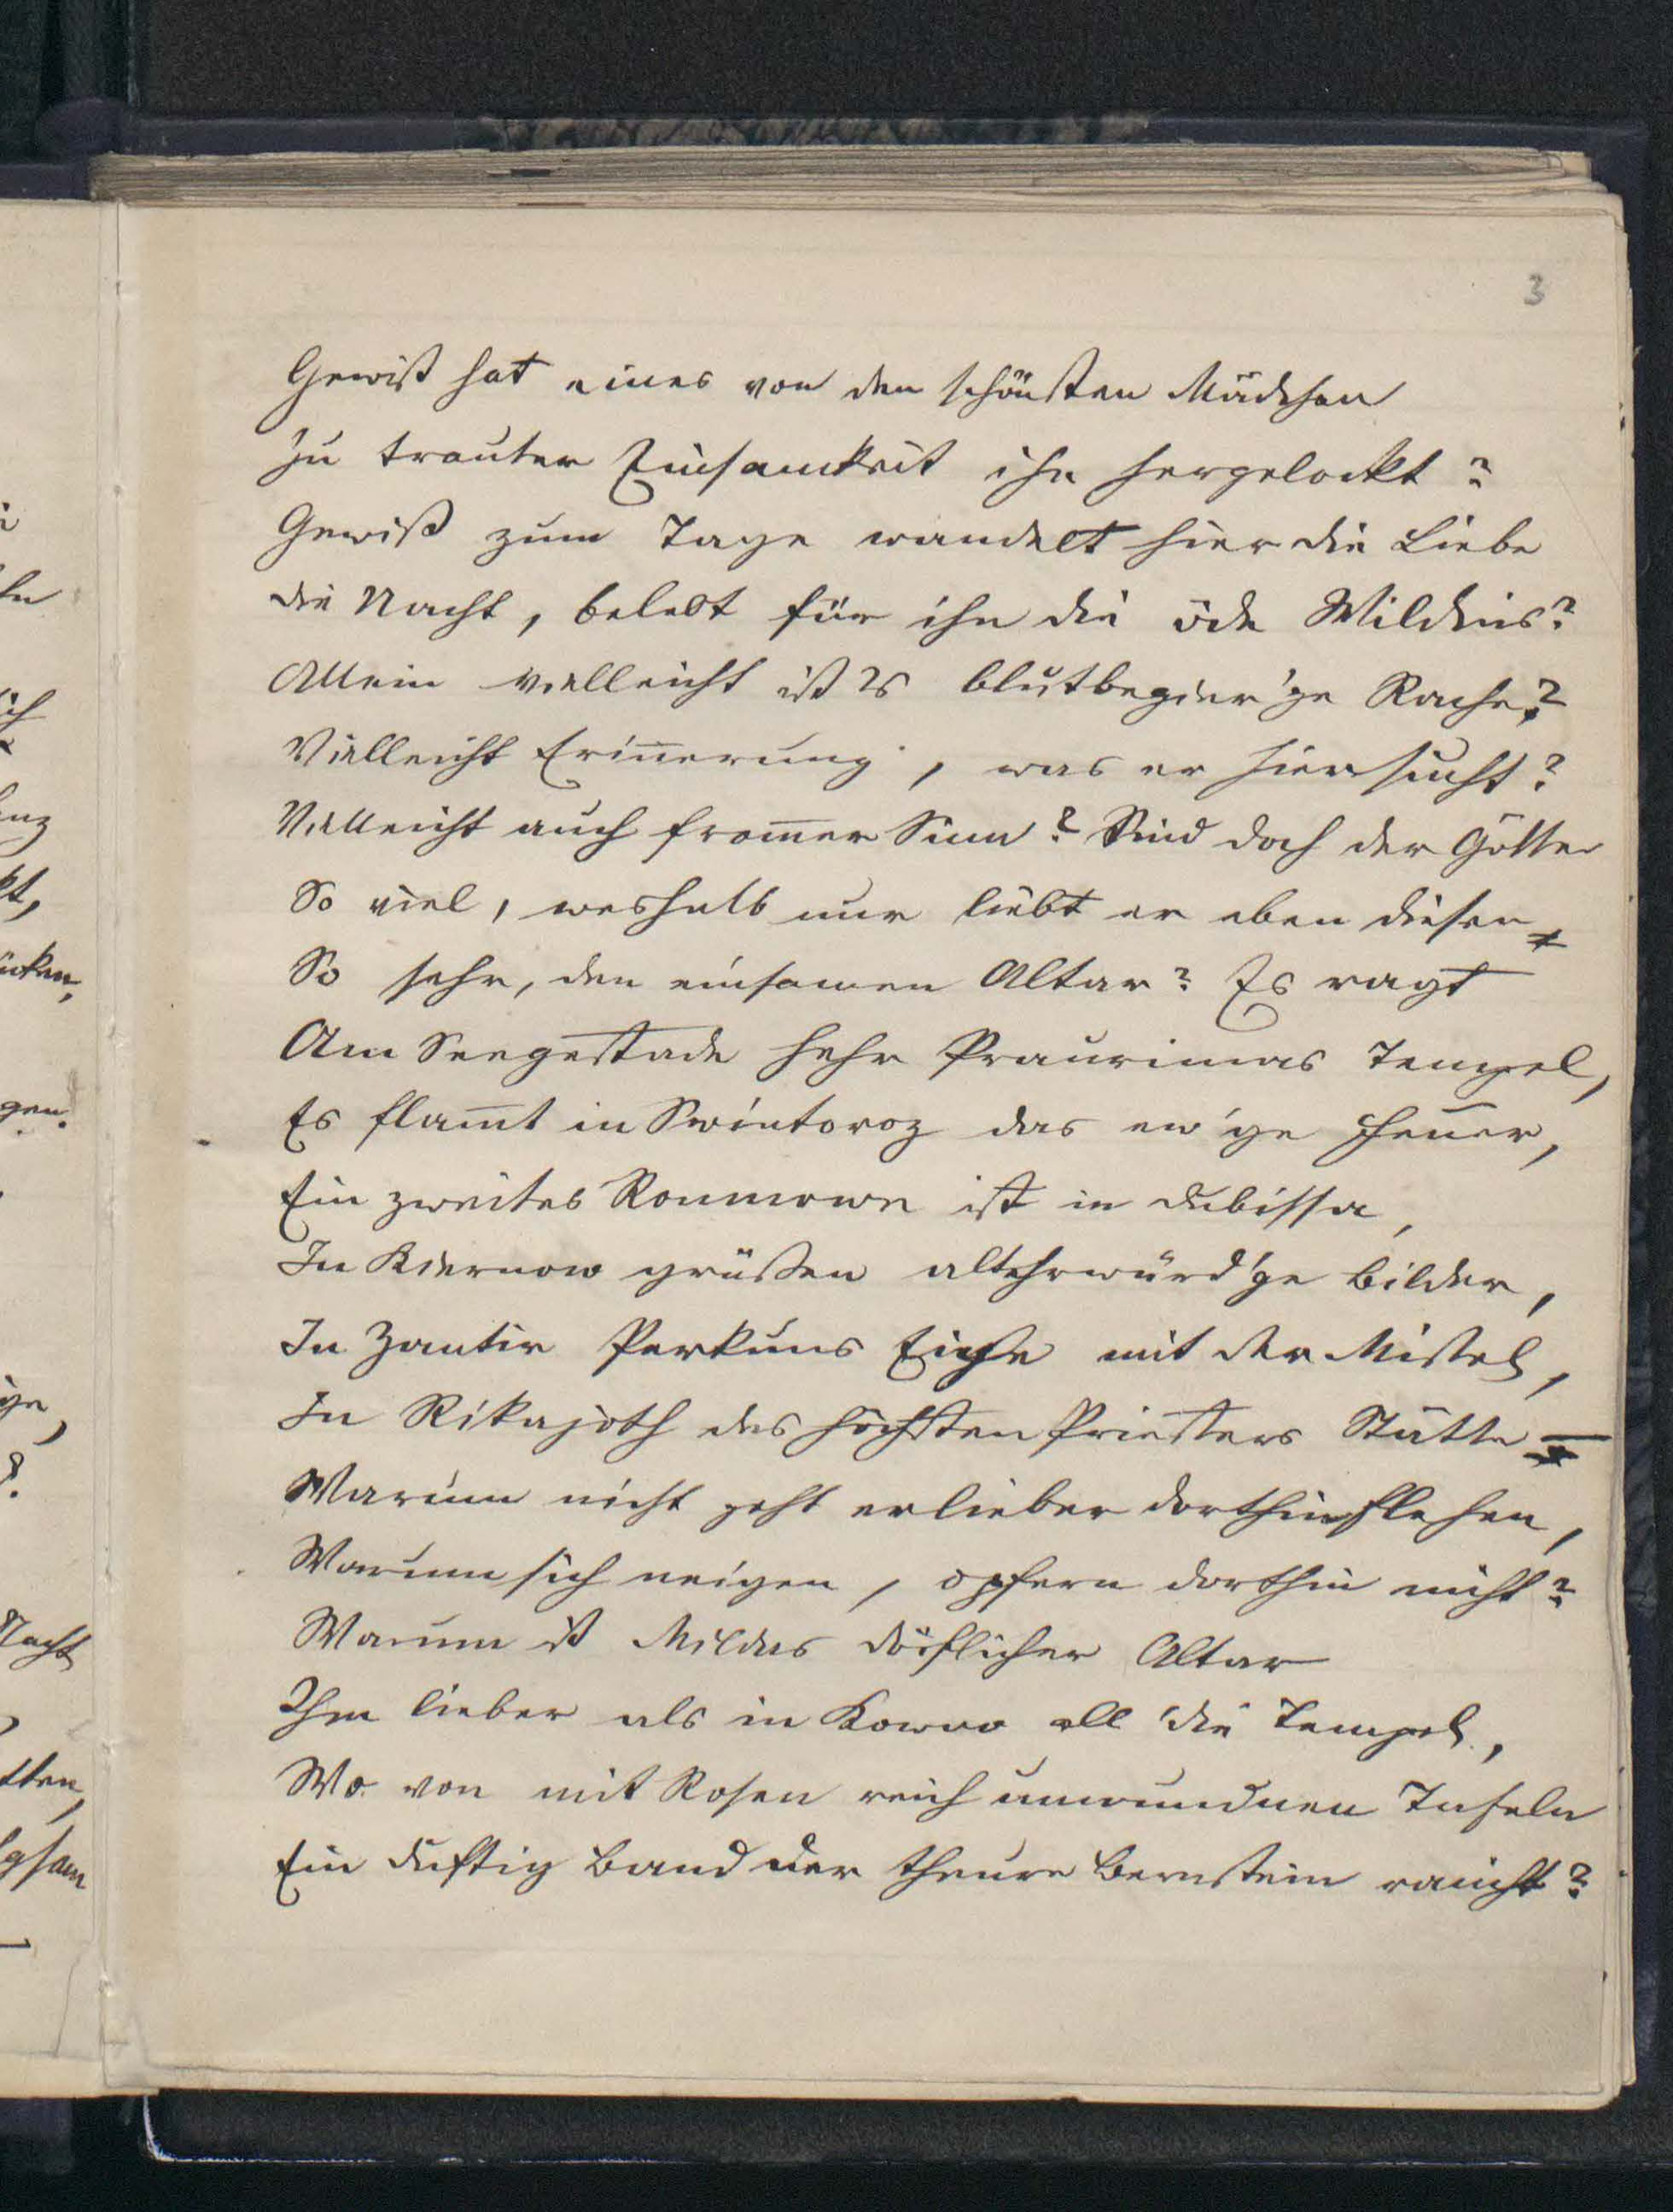 3
Gewiß hat eines von den schönsten Mädchen
Zu trauter Einsamkeit ihn hergelockt?
Gewiß zum Tage wandelt hier die Liebe
die Nacht, belebt für ihn die öde Wildnis?
Allein vielleicht ist es blutbegier'ge Rache?
Vielleicht Eriñerung, was er hier sucht?
Vielleicht auch from̄er Sinn? Sind doch der Götter
So viel, weshalb nur liebt er eben diesen
So sehr, den einsamen Altar? Es ragt
Am Seegestade hehr Praurimas Tempel,
Es flam̄t in Swintoroz das ew'ge Feuer,
Ein zweites Romnowe ist in Dubissa,
In Kiernow grüßen altehrwürd'ge Bilder,
In Zantir Perkuns Eiche mit der Mistel,
In Rikajoth des höchsten Priesters Stätte –
Warum nicht geht er lieber dorthin flehen,
Warum sich neigen, opfern dorthin nicht?
Warum ist Mildas dörflicher Altar
Ihm lieber als in Kowno all' die Tempel,
Wo von mit Rosen reich umwundnen Tafeln
Ein duftig Band der theure Bernstein raucht?